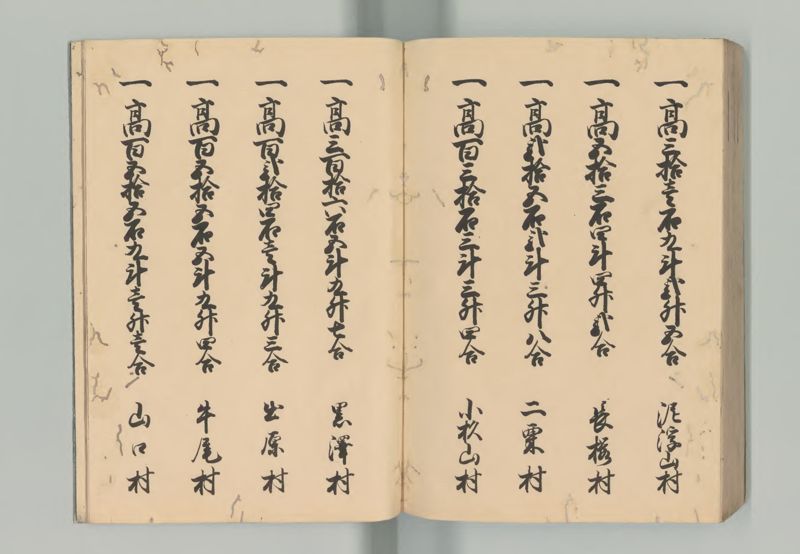 一 高三拾壱石九斗弐升五合 泥浮山村
一 高五拾三石四斗四升弐合 長桜村
一 高弐拾五石弐斗三升八合 二栗村
一 高百三拾石三斗三升四合 小松山村
一 高三百拾六石五斗九升七合 黒澤村
一 高百弐拾四石壱斗九升三合 出原村
一 高百五拾五石五斗九升四合 牛尾村
一 高百五拾五石九斗壱升壱合 山口村